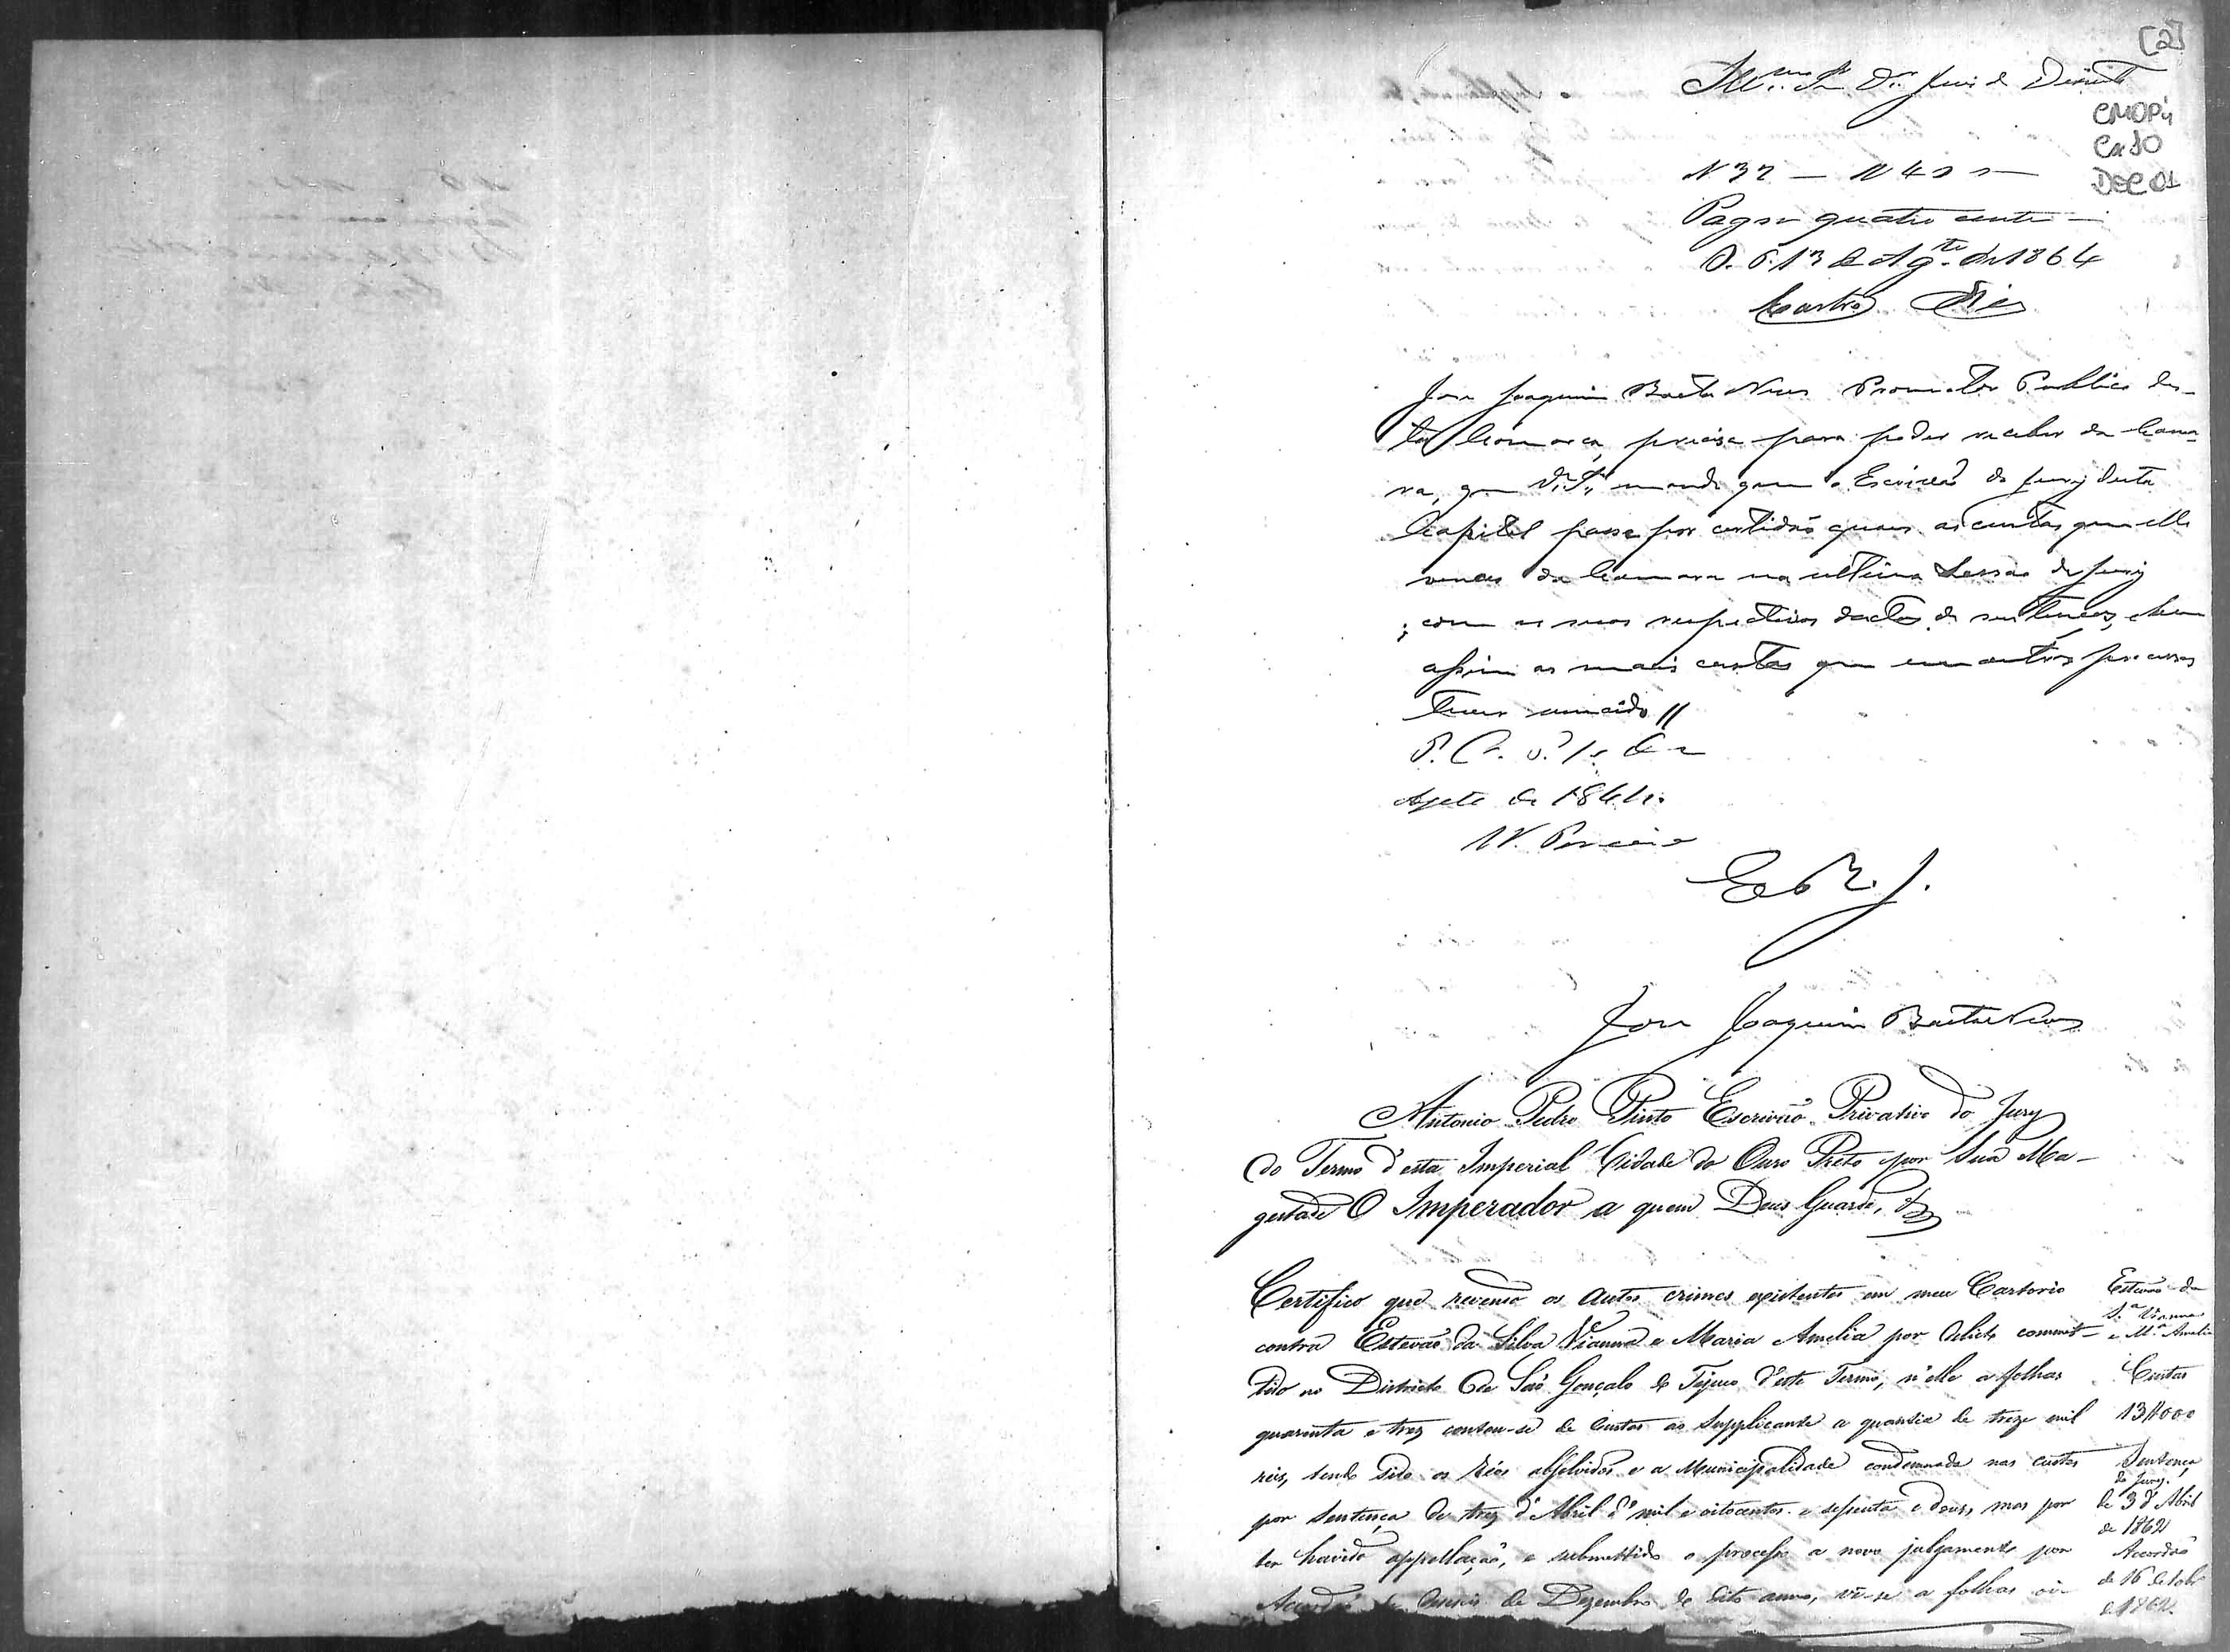 [2]
Ill.mo Sr. Dr. Juiz de Direito
CMOP
Cx 10
DOC 01
N 32 — N 400
Pagou quatro centos
O. P. 13 de Ag.to de 1864
Castro Dias
José Joaquim Baeta Neves Promotor Publico des-
ta Comarca, precisa para poder receber da Cama-
ra, que V. S. mande que o Escrivão do Jury desta
Capital passe por certidão quaes as custas que elle
venceo da Camara na ultima Sessão do Jury
com as suas respectivas dactas de sentenças, e bem
assim as mais custas que em outros processos
tiver vencido //
P. O. P.
Agosto de 1864.
E. R. J.
José Joaquim Baeta Neves
Antonio Pedro Pinto Escrivão Privativo do Jury
do Termo d'esta Imperial Cidade do Ouro Preto por Sua Ma-
gestade O Imperador a quem Deus Guarde, &
Certifico que revendo os autos crimes existentes em meu Cartorio
contra Estevão da Silva Vianna e Maria Amelia por delicto commet-
tido no Districto de São Gonçalo do Tejuco d'este Termo, n'elle a folhas
quarenta e trez contou-se de custas ao Supplicante a quantia de treze mil
reis, tendo sido os réos absolvidos e a Municipalidade condemnada nas custas
por Sentença de trez d'Abril de mil e oitocentos e sessenta e dous, mas por
ter havido appellação, e submettido o processo a novo julgamento por
Acordão de deseseis de Dezembro do dito anno, vê-se a folhas oi-
Estevão da
S.a Vianna
e M.a Amelia
Custas
13#000
Sentença
do Jury.
de 3 d'Abril
de 1862
Acordão
de 16 de
de 1862.